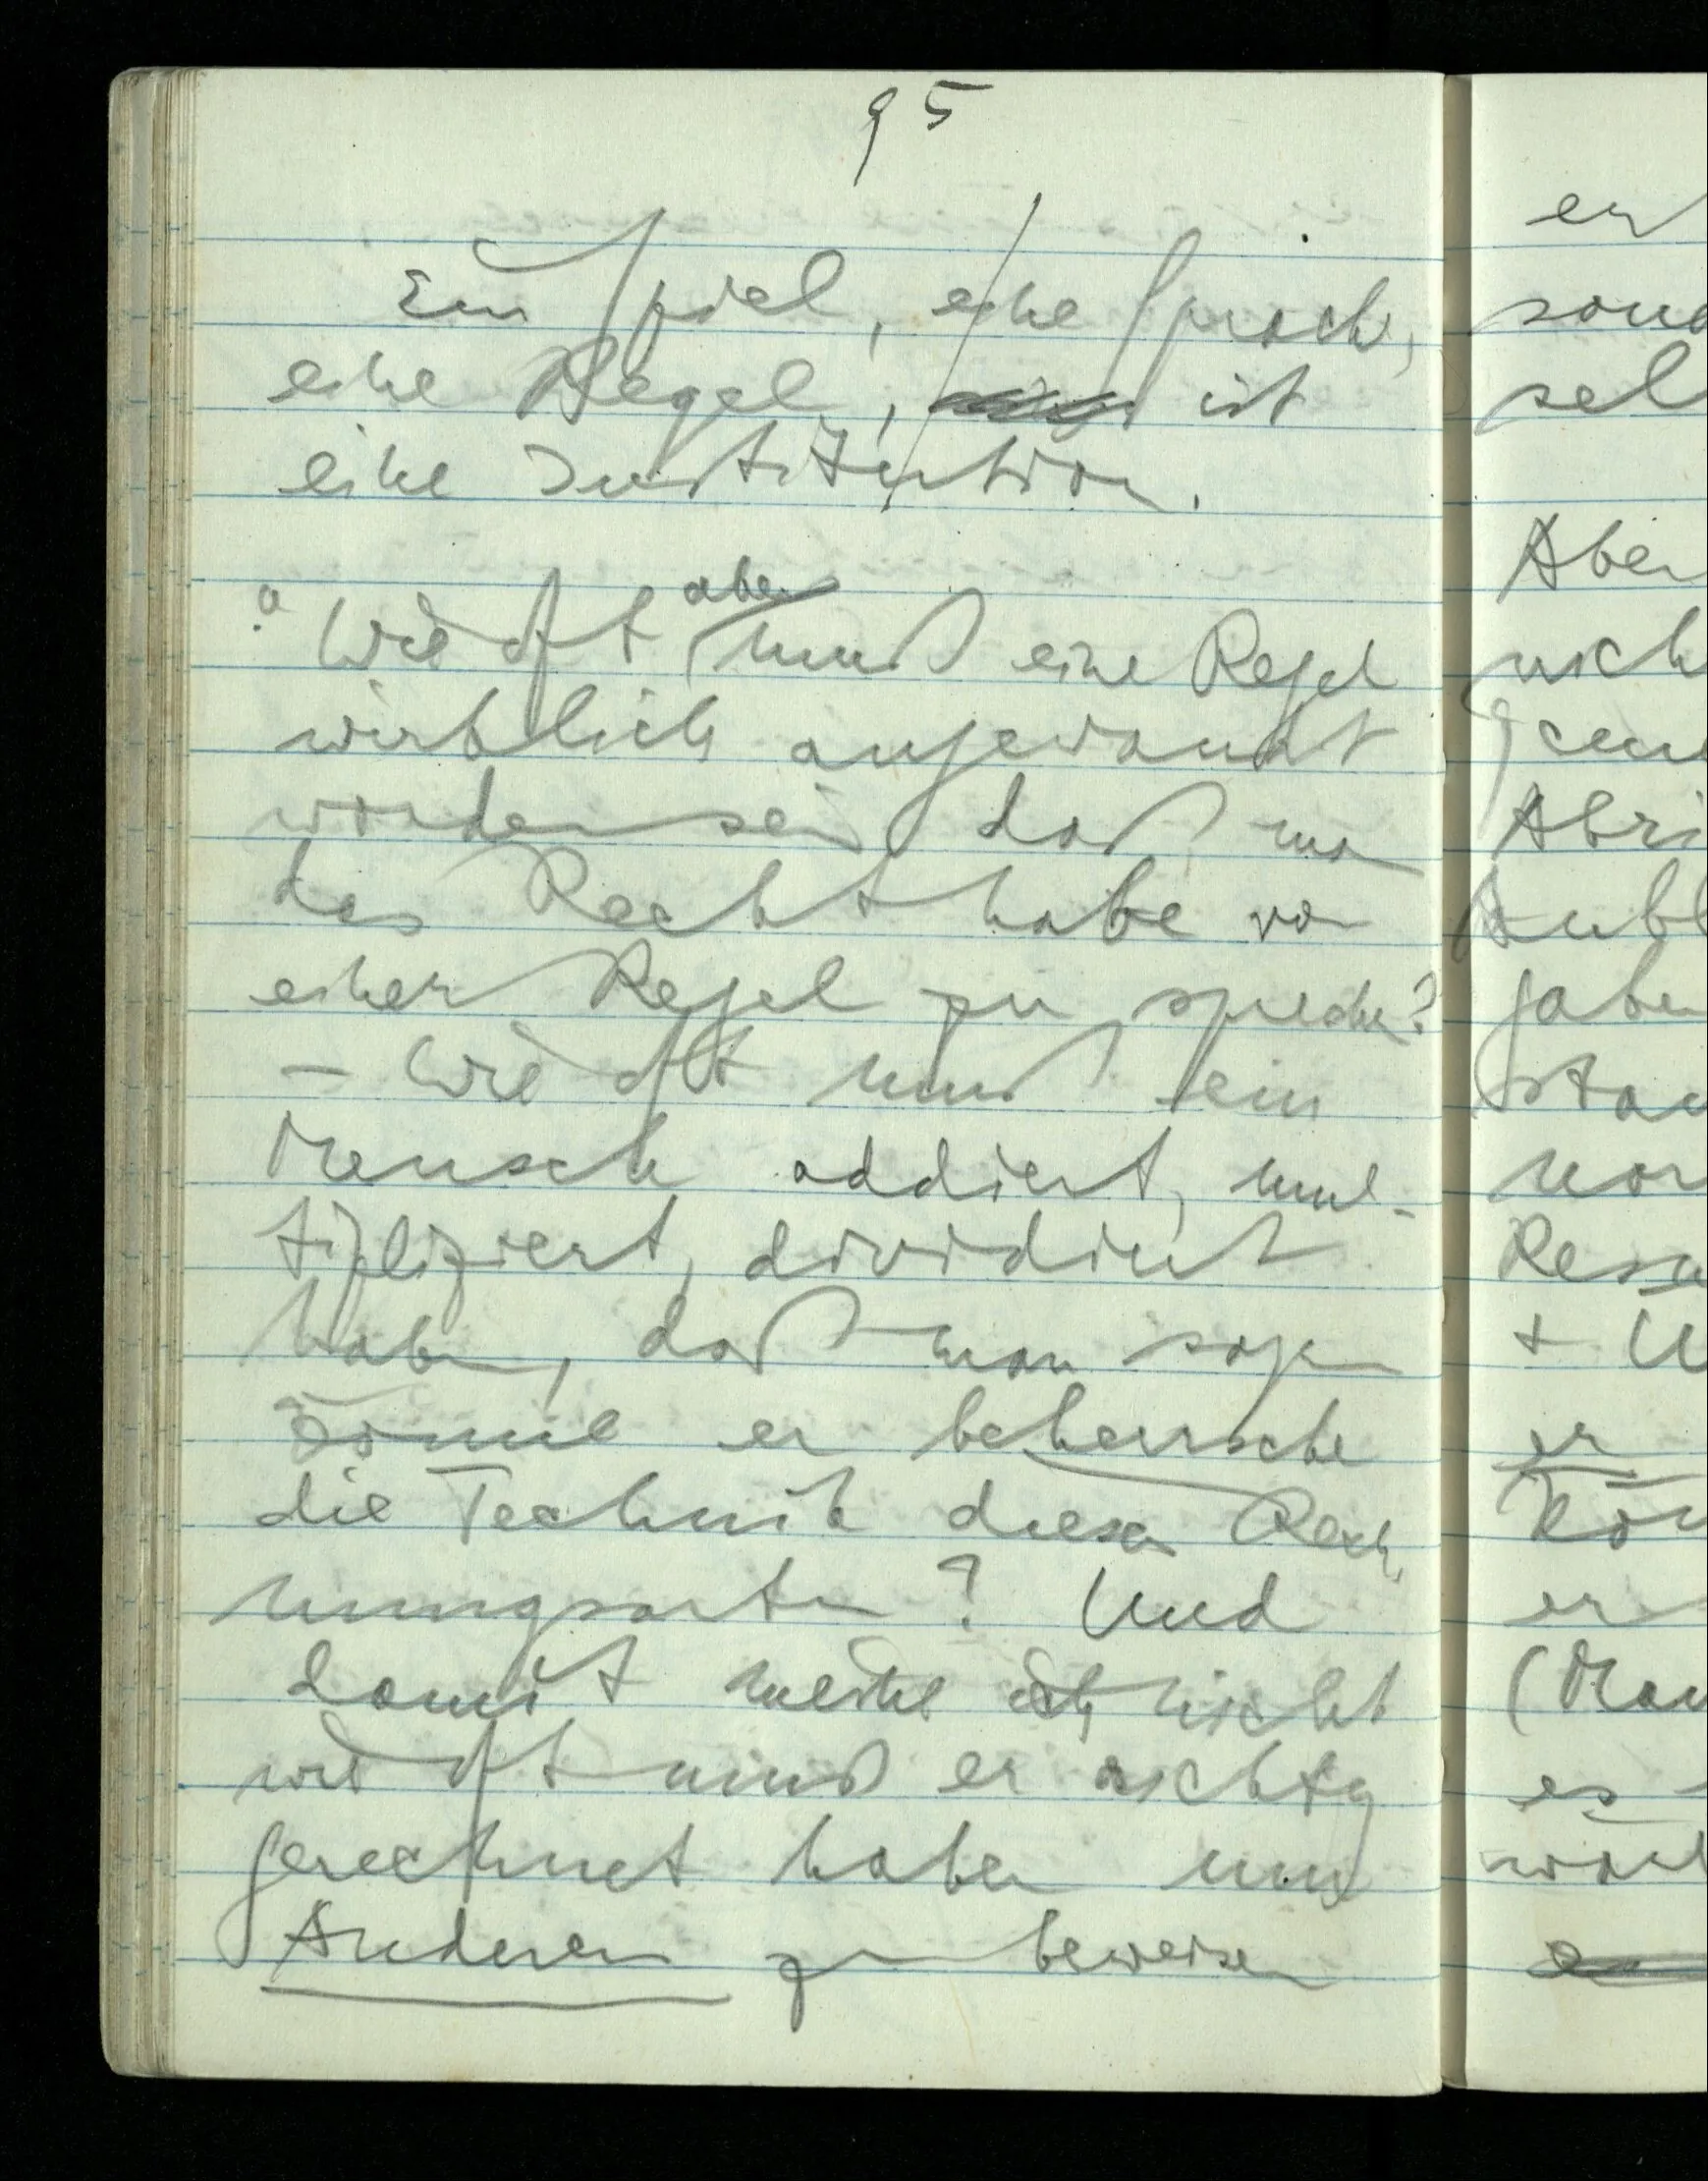 95
Ein Spiel, eine Sprache,
eine Regel, ist
eine Institution.
" Wie oft aber muß eine Regel
wirklich angewandt
worden sein daß man
das Recht habe von
einer Regel zu sprechen?
– Wie oft muß ein
Mensch addiert, mul-
tipliziert, dividiert
haben, daß man sagen
könne er beherrsche
die Technik dieser Rech-
nungsarten? Und
damit meine ich nicht
wie oft muß er richtig
gerechnet haben um
Anderen zu beweisen
er
sond
sel
Aber
nich
Abri
gaben
stan
Resu
+ U
er
Kön
er
(Man
es